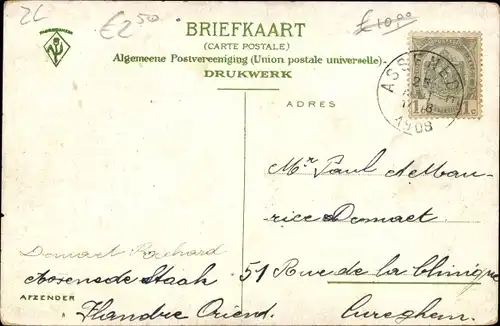 2L
€2⁵⁰
£10,00
BRIEFKAART
(CARTE POSTALE)
Algemeene Postvereeniging (Union postale universelle)
DRUKWERK
ADRES
ASSENEDE
1908
1 1c
Mr Paul &
rice Domaet
51 Rue de la Clinique
Cureghem.
Domaet Richard
Assenede Staak
AFZENDER
Flandre Orient.